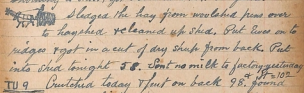 Sledged the hay from woolshed pens over
to hayshed & cleaned up shed. Put two on to
& got in a cut of dry sheep from back. Put
into shed tonight 58. Sent no milk to factory yesterday
TU 9 today & put on back 98. found